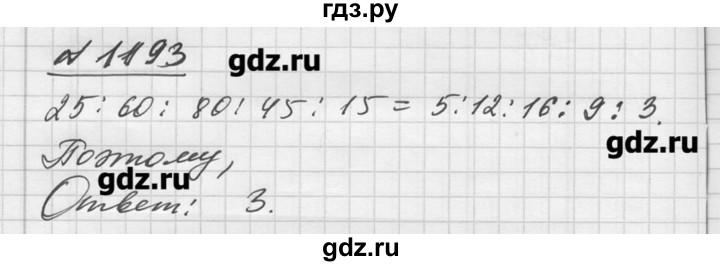 гдз.ру
№ 1193 gdz.ru
25 : 60 : 80 : 45 : 15 = 5 : 12 : 16 : 9 : 3.
gdz.ru
Поэтому,
gdz.ru
Ответ: 3.
gdz.ru